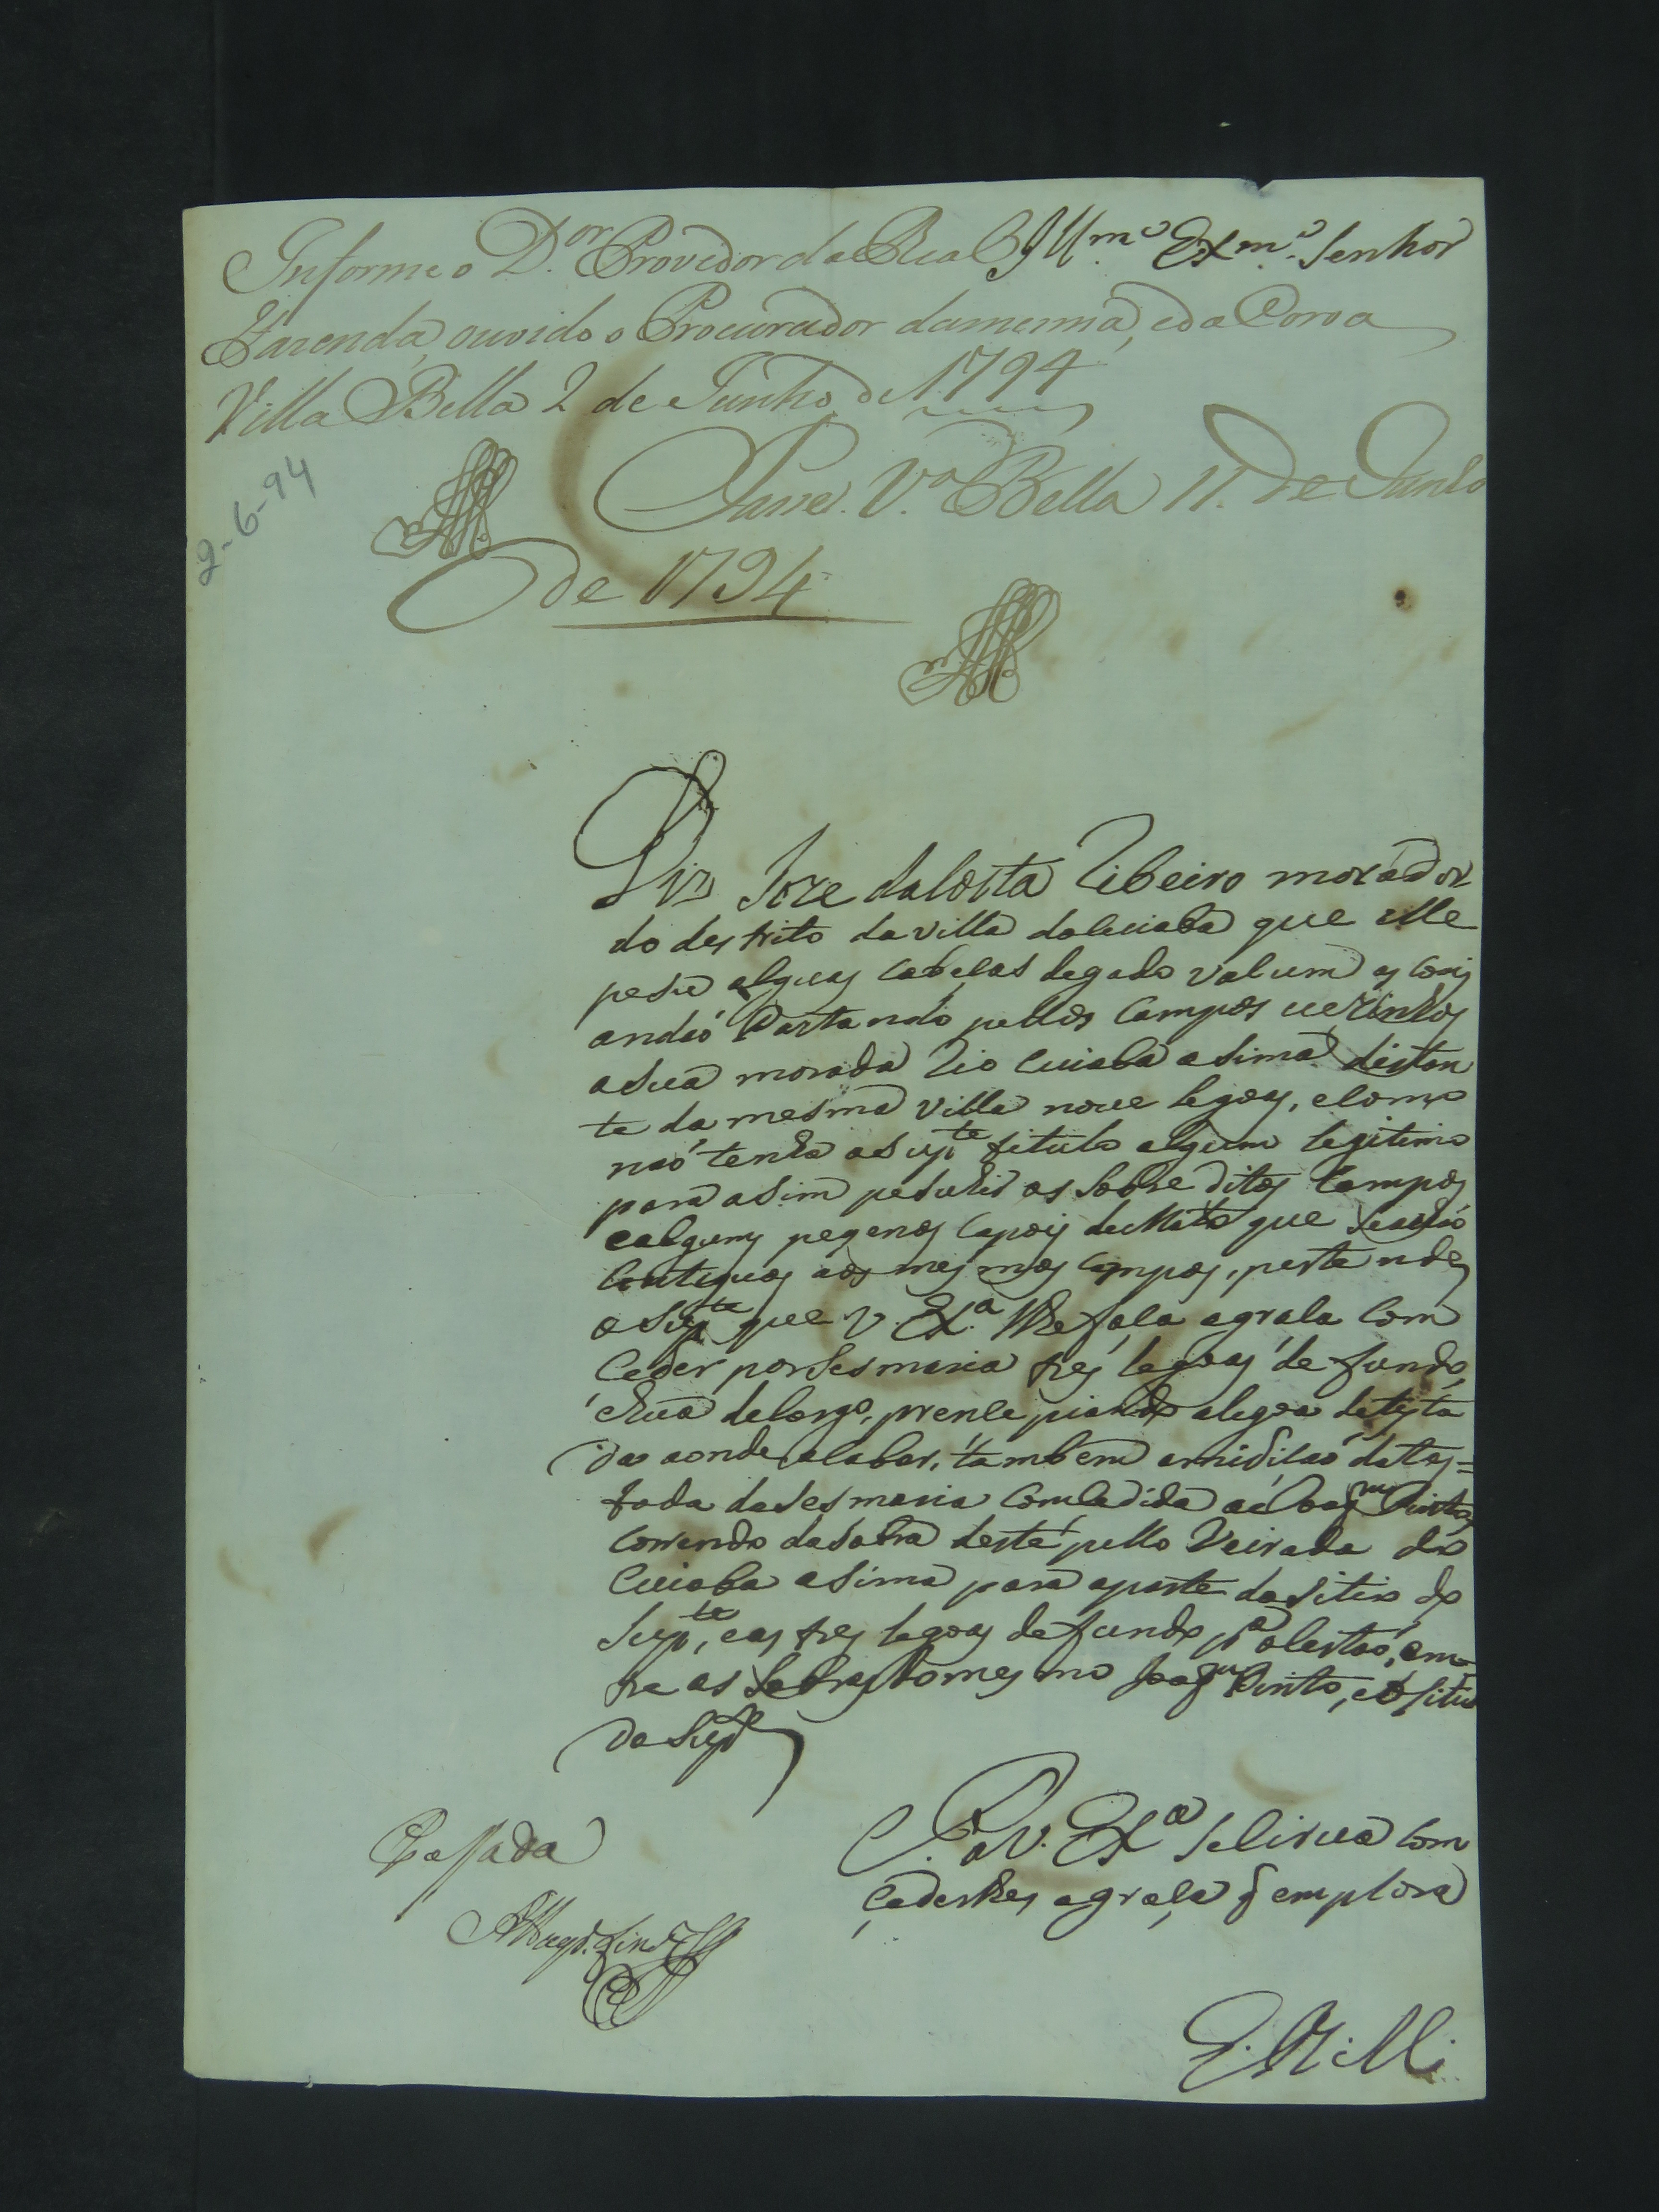 Informe o D.or Provedor da Real
Ill.mo Exm.o Senhor
Fazenda, ouvido o Procurador damesma, eda Coroa
Villa Bella 2 de Junho de 1794
2-6-94
Passe. V.a Bella 11. de Junho
de 1794
Diz Joze daCosta Ribeiro morador
do destrito davilla doCuiaba que elle
pesue alguas cabeças degado vacum e coais
andaõ Pastando pellos Campos vezinhos
asua morada Rio Cuiaba asima distan
te da mesma Villa nove legoas, ecomo
naõ tenha osupte titulo algum legitimo
para asim pesuhir os sobre ditos Campos
ealguns pequenos capois deMato que
Contiguos aos mesmos Campos, pertende
o Supte que V. Exa. lhe faça agraça Com
Ceder porSesmaria tres legoas de fundo,
ehua delargo, prencipiando alegoa detesta
da aonde acabar, tambem amidisaõ datas=
tada dasesmaria Comcedida aJoaqm Pinto,
Correndo dasobra deste pello Veirada do
Cuiaba asima para aparte dositio do
Supte, eas tres legoas defundo pa oCertaõ, em
tre as Sobras domesmo Joaqm Pinto, eositio
do Supte
Passada
P. a V. Exa Selirva Com
cederlhe, agraça q emplora
E. R. M.